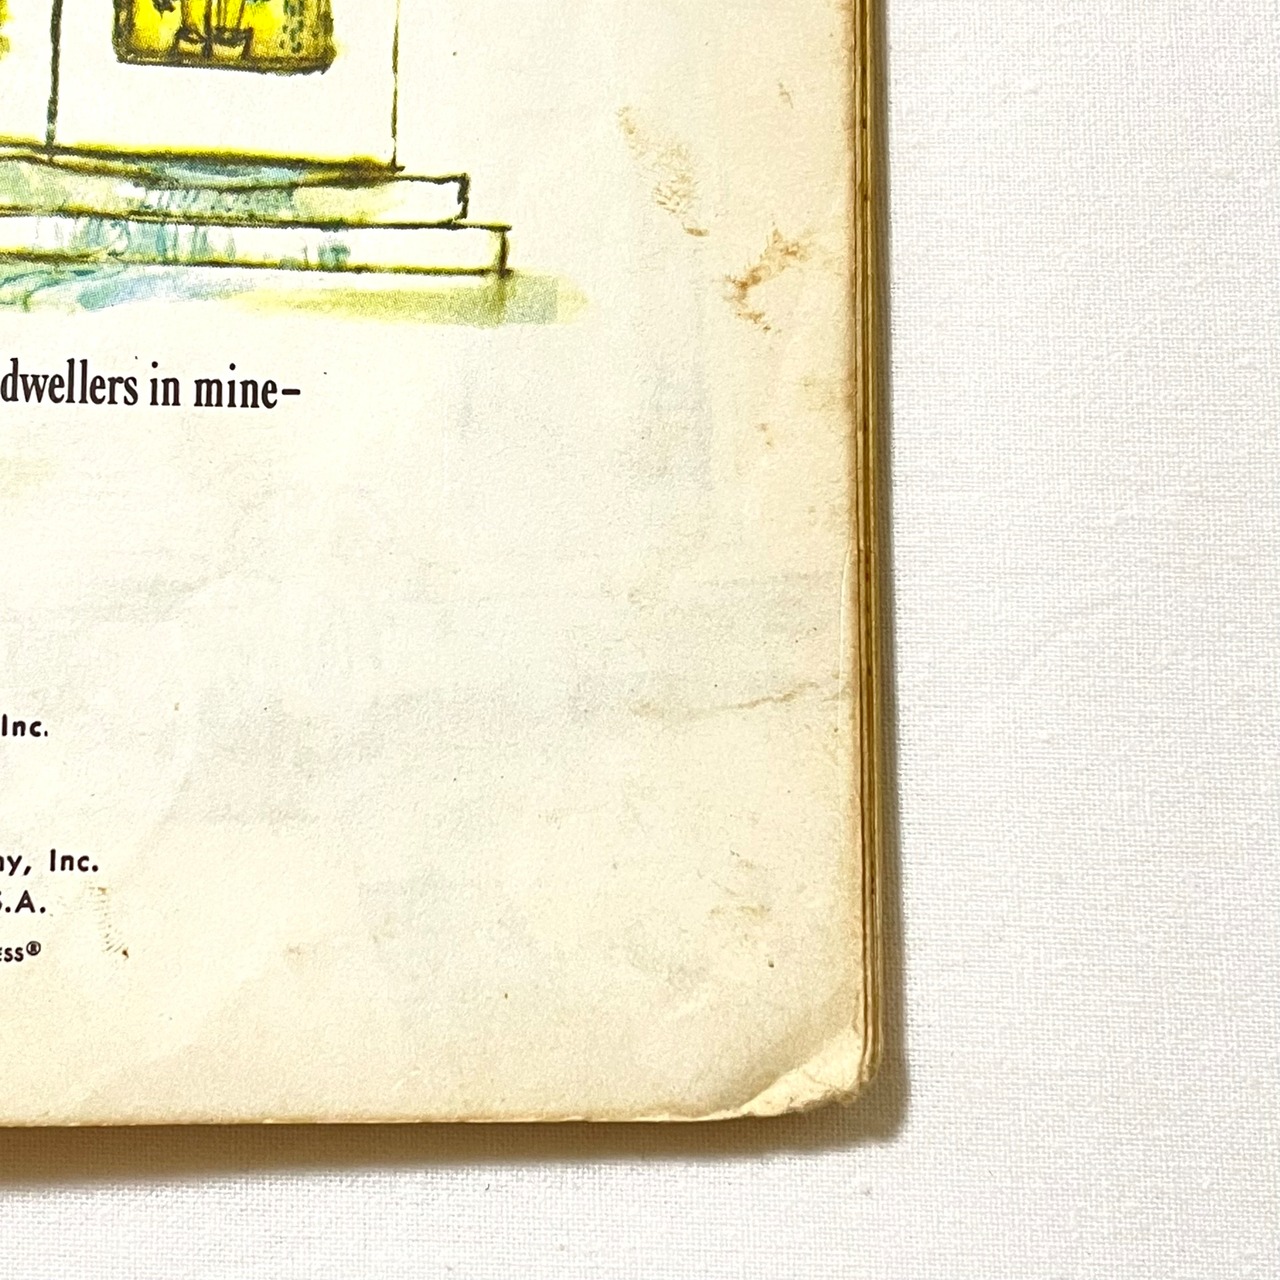 dwellers in mine–
Inc.
ny, Inc.
S.A.
ESS®